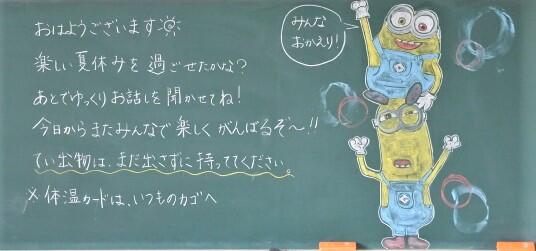 おはようございます
楽しい夏休みを過ごせたかな?
あとでゆっくりお話しを聞かせてね!
今日からまたみんなで楽しくがんばるぞ〜!!
てい出物は、まだ出さずに持っててください。
×体温カードは、いつものカゴへ
みんな
おかえり!